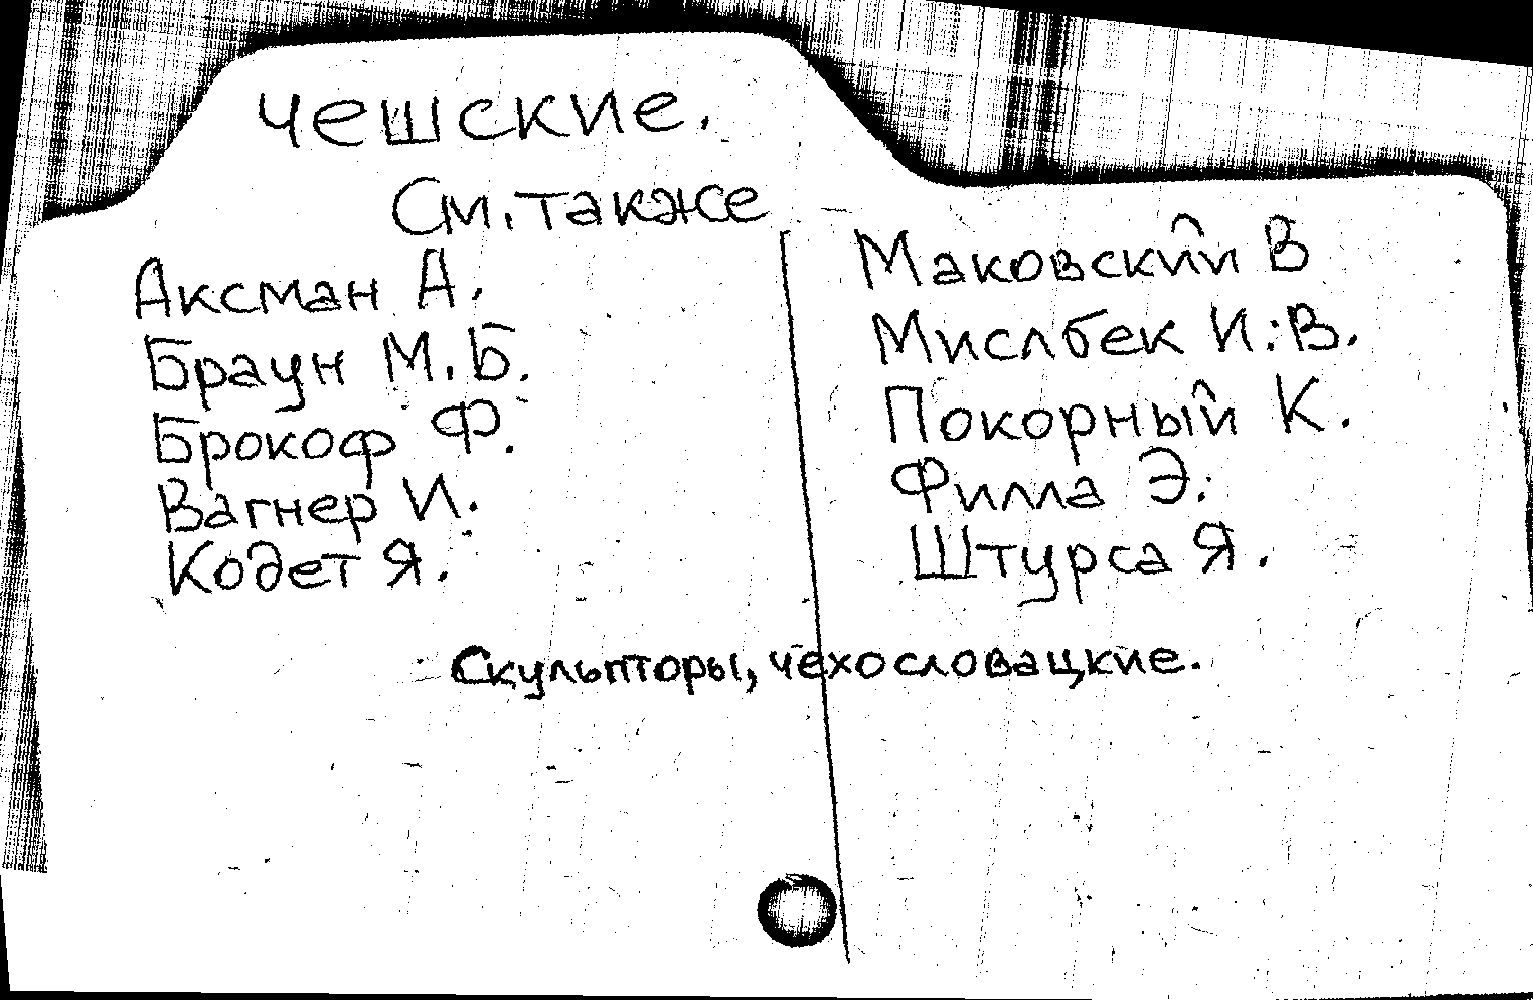 чешские.
См. также
Аксман А.
Браун М.Б.
Брокоф Ф.
Вагнер И.
Кодет Я.
Маковский В
Мислбек И.В.
Покорный К.
Филла Э.
Штурса Я.
Скульпторы, чехословацкие.